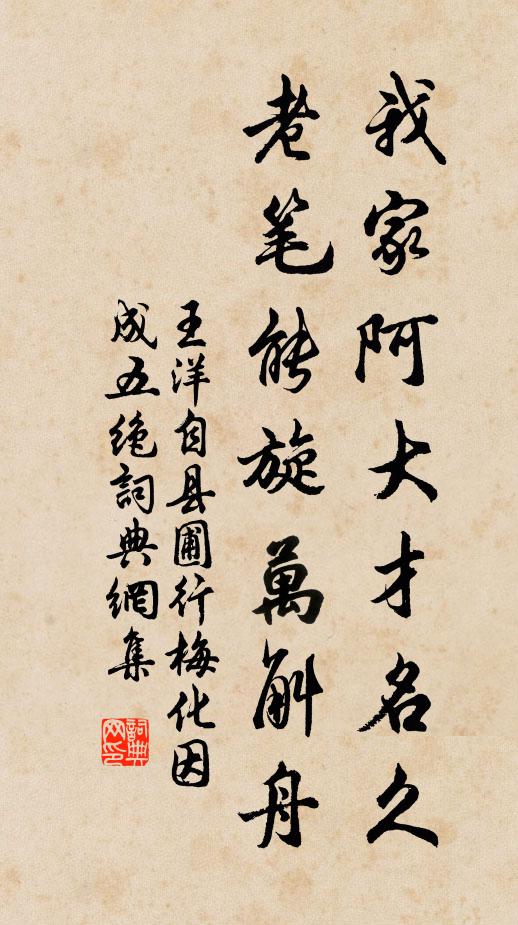 我家阿大才名久
老笔能旋萬斛舟
王洋自县圃行梅化因
成五绝詞典網集
詞典
网印